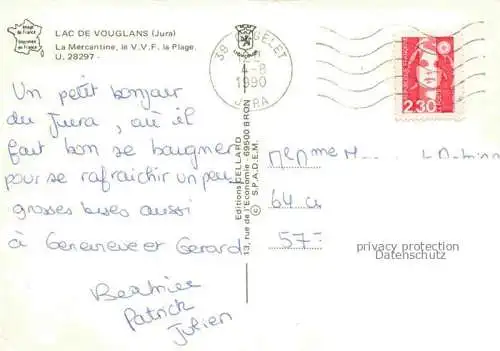 Image de France
LAC DE VOUGLANS (Jura)
La Mercantine, le V.V.F. la Plage.
U. 28297 -
39 ORGELET
4-8
1990
JURA
2,30
Un petit bonjour
du Jura, où il
fait bon se baigner
pour se rafraichir un peu
grosses bises aussi
à Genevieve et Gerard
Beatrice
Patrick
Julien
Editions CELLARD
13, rue de l'Economie - 69500 BRON
© S.P.A.D.E.M.
64
57
privacy protection
Datenschutz